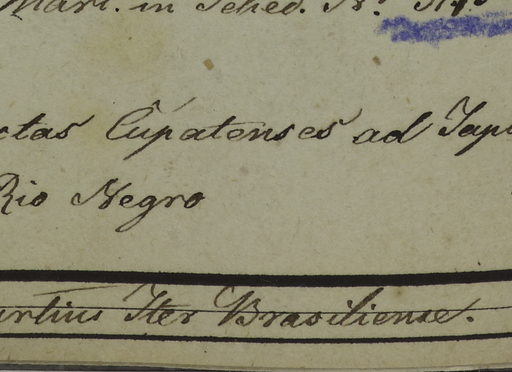 Mart. in Sched. N.
ctas Cupatenses ad Japu
Rio Negro
artius Iter Brasiliense.